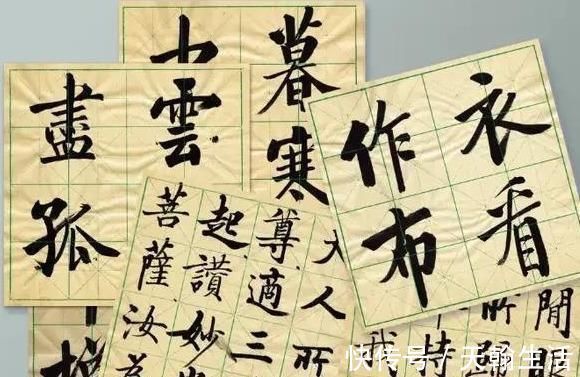 盡孤
雲
暮寒
衣看
作布
大人所
尊適三
起讚妙
菩薩汝
閒
所
持
我
快传号 / 天翰生活